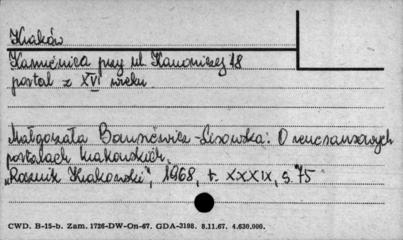 Kraków
Kamienica przy ul. Kanoniczej 18
portal z XVI wieku.
Małgorzata Borusiewicz-Lisowska: O renesansowych
portalach krakowskich.
„Rocznik Krakowski", 1968, t. XXXIX, s. 75
CWD. B-15-b. Zam. 1726-DW-On-67. GDA-2198. 8.11.67. 4.630.000.